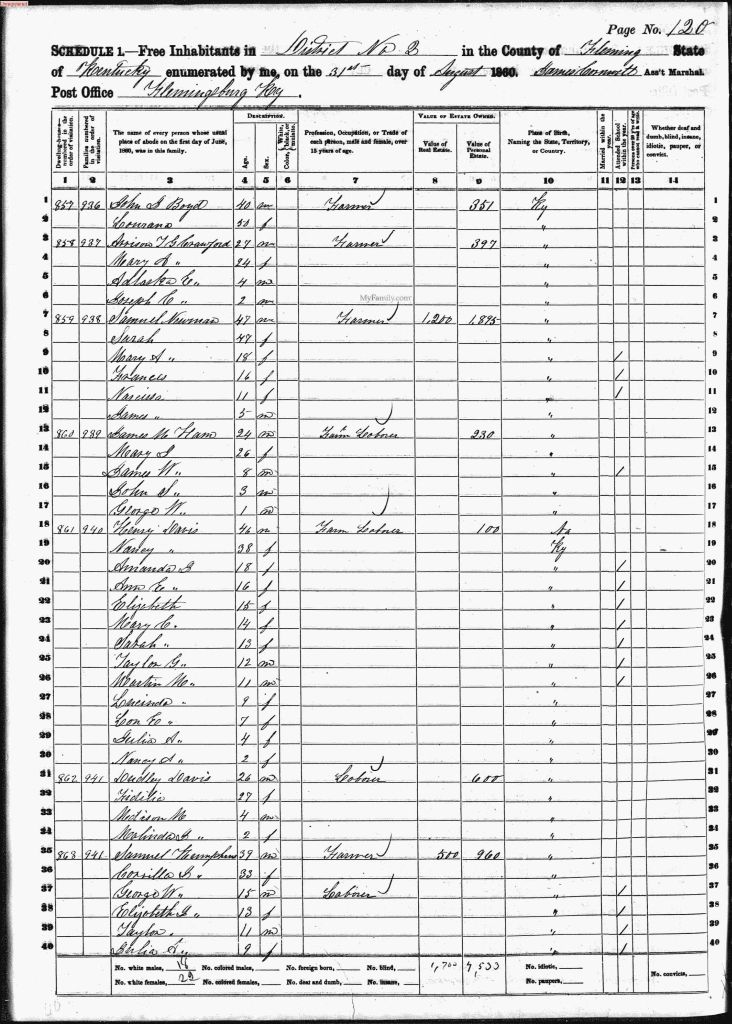 Page No. 120
SCHEDULE 1.—Free Inhabitants in District No 2 in the County of Fleming State
of Kentucky enumerated by me, on the 31st day of August 1860. James Ass't Marshal.
Post Office Flemingsburg Ky.
Dwelling-houses—numbered in the order of visitation.
Families numbered in the order of visitation.
The name of every person whose usual place of abode on the first day of June, 1860, was in this family.
DESCRIPTION.
Age.
Sex.
Color, White, black, or mulatto.
Profession, Occupation, or Trade of each person, male and female, over 15 years of age.
VALUE OF ESTATE OWNED.
Value of Real Estate.
Value of Personal Estate.
Place of Birth, Naming the State, Territory, or Country.
Married within the year.
Attended School within the year.
Whether deaf and dumb, blind, insane, idiotic, pauper, or convict.
1 2 3 4 5 6 7 8 9 10 11 12 13 14
1 857 936 John Boyd 40 m Farmer 351 Ky 1
2 Lourana 50 f " 2
3 858 937 Crawford 27 m Farmer 397 " 3
4 Mary A " 24 f " 4
5 E " 4 m " 5
6 Joseph C " 2 m " 6
MyFamily.com
7 859 938 Samuel Newman 47 m Farmer 1,200 1,895 " 7
8 Sarah 47 f " 8
9 Mary A " 18 f " / 9
10 Frances 16 f " / 10
11 Narcissa 11 f " / 11
12 James " 5 m " 12
13 860 939 James M Ham 24 m Farm Laborer 230 " 13
14 Mary 26 f " 14
15 James W " 8 m " / 15
16 John S " 3 m " 16
17 George W " 1 m " 17
18 861 940 Henry Davis 46 m Farm Laborer 100 18
19 Nancy " 38 f Ky 19
20 Amanda " 18 f " / 20
21 Ann E " 16 f " / 21
22 Elizabeth 15 f " / 22
23 Mary C. 14 f " / 23
24 Sarah " 13 f " / 24
25 Taylor G " 12 m " / 25
26 Martin M " 11 m " / 26
27 Lucinda " 9 f " 27
28 E " 7 f " 28
29 Julia A " 4 f " 29
30 Nancy A " 2 f " 30
31 862 941 Dudley Davis 26 m Laborer 600 " 31
32 27 f " 32
33 Madison M 4 m " 33
34 Malinda " 2 f " 34
35 863 941 Samuel Humphries 39 m Farmer 500 960 " 35
36 33 f " 36
37 George W " 15 m Laborer " / 37
38 Elizabeth " 13 f " / 38
39 Taylor " 11 m " / 39
40 Julia A " 9 f " / 40
No. white males, 18 No. colored males, No. foreign born, No. blind, 1,700 4,533 No. idiotic,
No. white females, 22 No. colored females, No. deaf and dumb, No. insane, No. paupers, No. convicts,